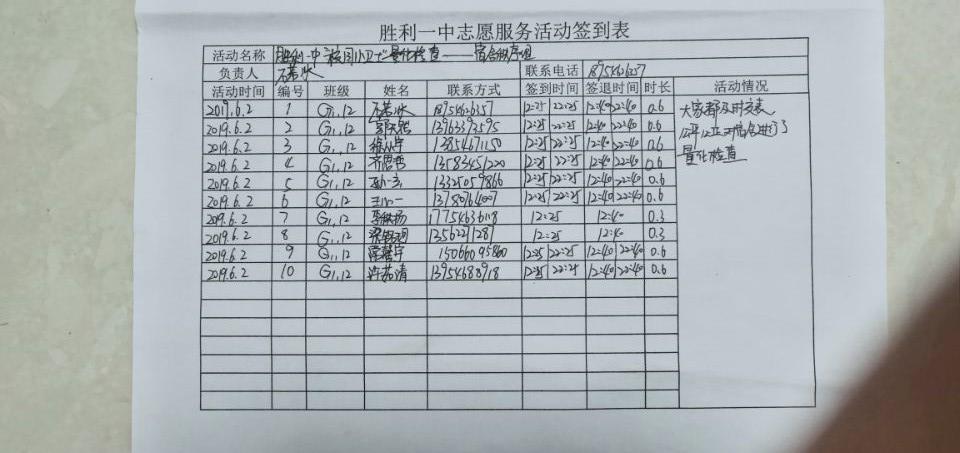 胜利一中志愿服务活动签到表
活动名称 胜利一中"校园小卫士"量化检查——宿舍秩序组
负责人 联系电话
活动时间 编号 班级 姓名 联系方式 签到时间 签退时间 时长 活动情况
2019.6.2 1 G1.12 12:25 22:25 12:40 22:40 0.6 大家都及时交表
2019.6.2 2 G1.12 13963393595 12:25 22:25 12:40 22:40 0.6 公平公正对宿舍进行了
2019.6.2 3 G1.12 13854671150 12:25 22:25 12:40 22:40 0.6 量化检查
2019.6.2 4 G1.12 齐思哲 13583451220 12:25 22:25 12:40 22:40 0.6
2019.6.2 5 G1.12 13325059866 12:25 22:25 12:40 22:40 0.6
2019.6.2 6 G1.12 12:25 22:25 12:40 22:40 0.6
2019.6.2 7 G1.12 17754636118 12:25 12:40 0.3
2019.6.2 8 G1.12 13562271287 12:25 12:40 0.3
2019.6.2 9 G1.12 15066095860 12:25 22:25 12:40 22:40 0.6
2019.6.2 10 G1.12 许茹清 13954688918 12:25 22:25 12:40 22:40 0.6